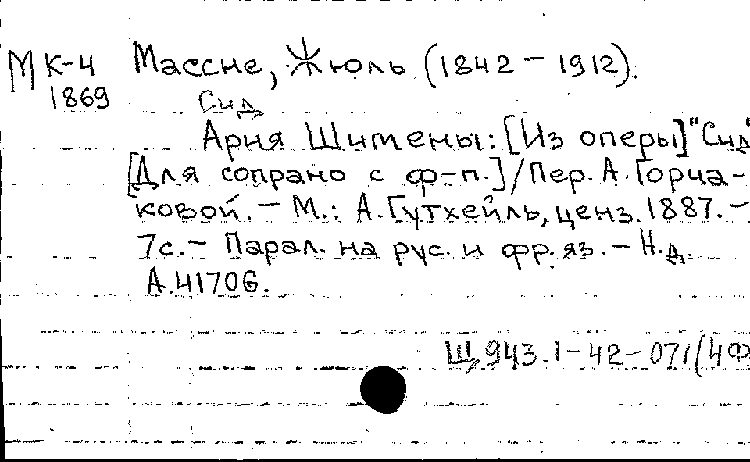 М К-4 Массне, Жюль (1842 – 1912).
1869
Сид
Ария Шимены: [Из оперы] "Сид"
[Для сопрано с ф-п.] / Пер. А. Горча-
ковой. – М.: А. Гутхейль, ценз. 1887. –
7с. – Парал. на рус. и фр. яз. – Н.д.
А.4170Б.
Щ943.1-42-071(4Ф